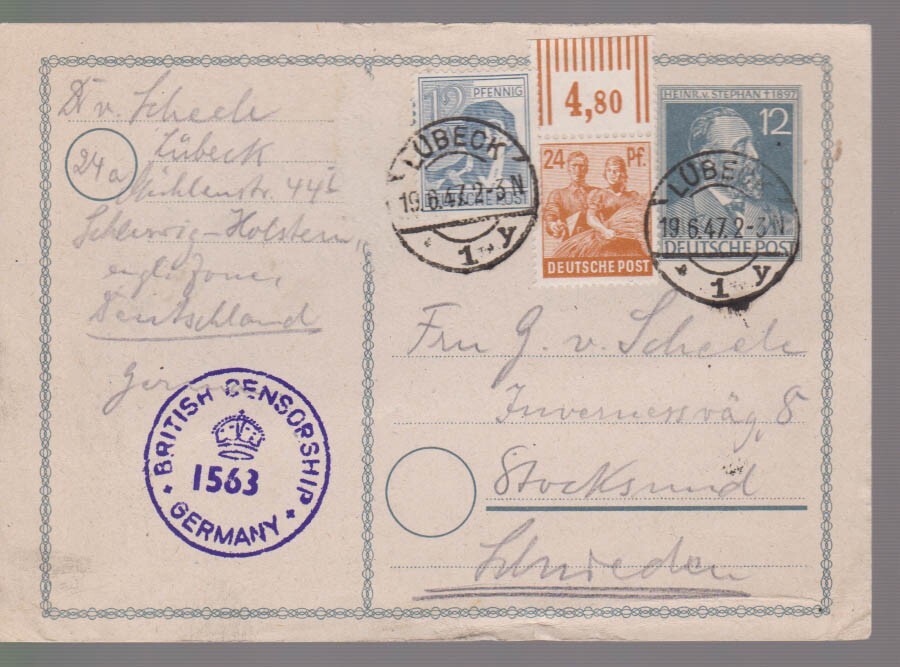 Dr v. Scheele
Lübeck
24a Mühlenstr. 44
Schleswig-Holstein,
engl. Zone,
Deutschland
Germany
12 PFENNIG
DEUTSCHE POST
4,80
24 Pf.
DEUTSCHE POST
HEINR. v. STEPHAN † 1897
12
DEUTSCHE POST
LÜBECK
19.6.47.2-3N
1 y
LÜBECK
19.6.47.2-3N
1 y
BRITISH CENSORSHIP
1563
GERMANY
Fru G. v. Scheele
Invernessväg, 8
Stocksund
Schweden